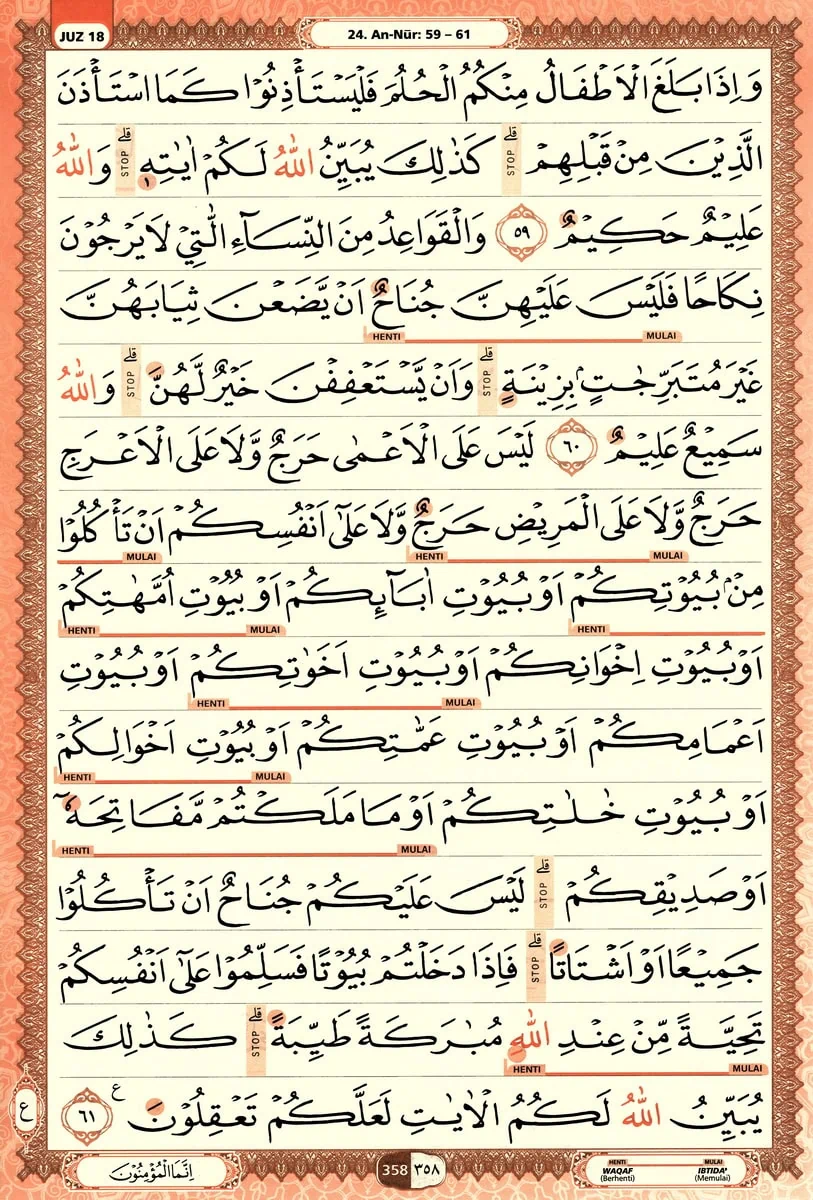 JUZ 18
24. An-Nūr: 59 – 61
وَاِذَا بَلَغَ الْاَطْفَالُ مِنْكُمُ الْحُلُمَ فَلْيَسْتَأْذِنُوْا كَمَا اسْتَأْذَنَ
الَّذِيْنَ مِنْ قَبْلِهِمْ ۗ STOP كَذٰلِكَ يُبَيِّنُ اللّٰهُ لَكُمْ اٰيٰتِهٖ ۗ STOP وَاللّٰهُ
عَلِيْمٌ حَكِيْمٌ ٥٩ وَالْقَوَاعِدُ مِنَ النِّسَاۤءِ الّٰتِيْ لَا يَرْجُوْنَ
نِكَاحًا فَلَيْسَ عَلَيْهِنَّ جُنَاحٌ اَنْ يَّضَعْنَ ثِيَابَهُنَّ
MULAI HENTI
غَيْرَ مُتَبَرِّجٰتٍۢ بِزِيْنَةٍ ۗ STOP وَاَنْ يَّسْتَعْفِفْنَ خَيْرٌ لَّهُنَّ ۗ STOP وَاللّٰهُ
سَمِيْعٌ عَلِيْمٌ ٦٠ لَيْسَ عَلَى الْاَعْمٰى حَرَجٌ وَّلَا عَلَى الْاَعْرَجِ
حَرَجٌ وَّلَا عَلَى الْمَرِيْضِ حَرَجٌ وَّلَا عَلٰٓى اَنْفُسِكُمْ اَنْ تَأْكُلُوْا
MULAI HENTI MULAI
مِنْۢ بُيُوْتِكُمْ اَوْ بُيُوْتِ اٰبَاۤىِٕكُمْ اَوْ بُيُوْتِ اُمَّهٰتِكُمْ
HENTI MULAI HENTI
اَوْ بُيُوْتِ اِخْوَانِكُمْ اَوْ بُيُوْتِ اَخَوٰتِكُمْ اَوْ بُيُوْتِ
MULAI HENTI
اَعْمَامِكُمْ اَوْ بُيُوْتِ عَمّٰتِكُمْ اَوْ بُيُوْتِ اَخْوَالِكُمْ
MULAI HENTI
اَوْ بُيُوْتِ خٰلٰتِكُمْ اَوْ مَا مَلَكْتُمْ مَّفَاتِحَهٗٓ
MULAI HENTI
اَوْ صَدِيْقِكُمْ ۗ STOP لَيْسَ عَلَيْكُمْ جُنَاحٌ اَنْ تَأْكُلُوْا
جَمِيْعًا اَوْ اَشْتَاتًا ۗ STOP فَاِذَا دَخَلْتُمْ بُيُوْتًا فَسَلِّمُوْا عَلٰٓى اَنْفُسِكُمْ
تَحِيَّةً مِّنْ عِنْدِ اللّٰهِ مُبٰرَكَةً طَيِّبَةً ۗ STOP كَذٰلِكَ
MULAI HENTI
يُبَيِّنُ اللّٰهُ لَكُمُ الْاٰيٰتِ لَعَلَّكُمْ تَعْقِلُوْنَ ࣖ ٦١
ع
اِنَّمَا الْمُؤْمِنُوْنَ
358 ٣٥٨
HENTI MULAI
WAQAF IBTIDA'
(Berhenti) (Memulai)